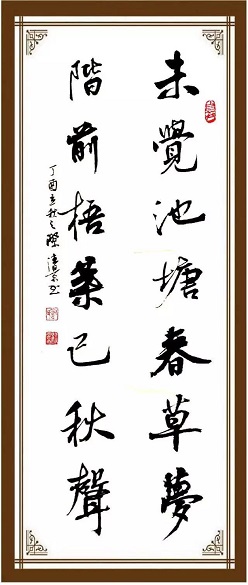 未覺池塘春草夢
階前梧葉已秋聲
丁酉立秋之際